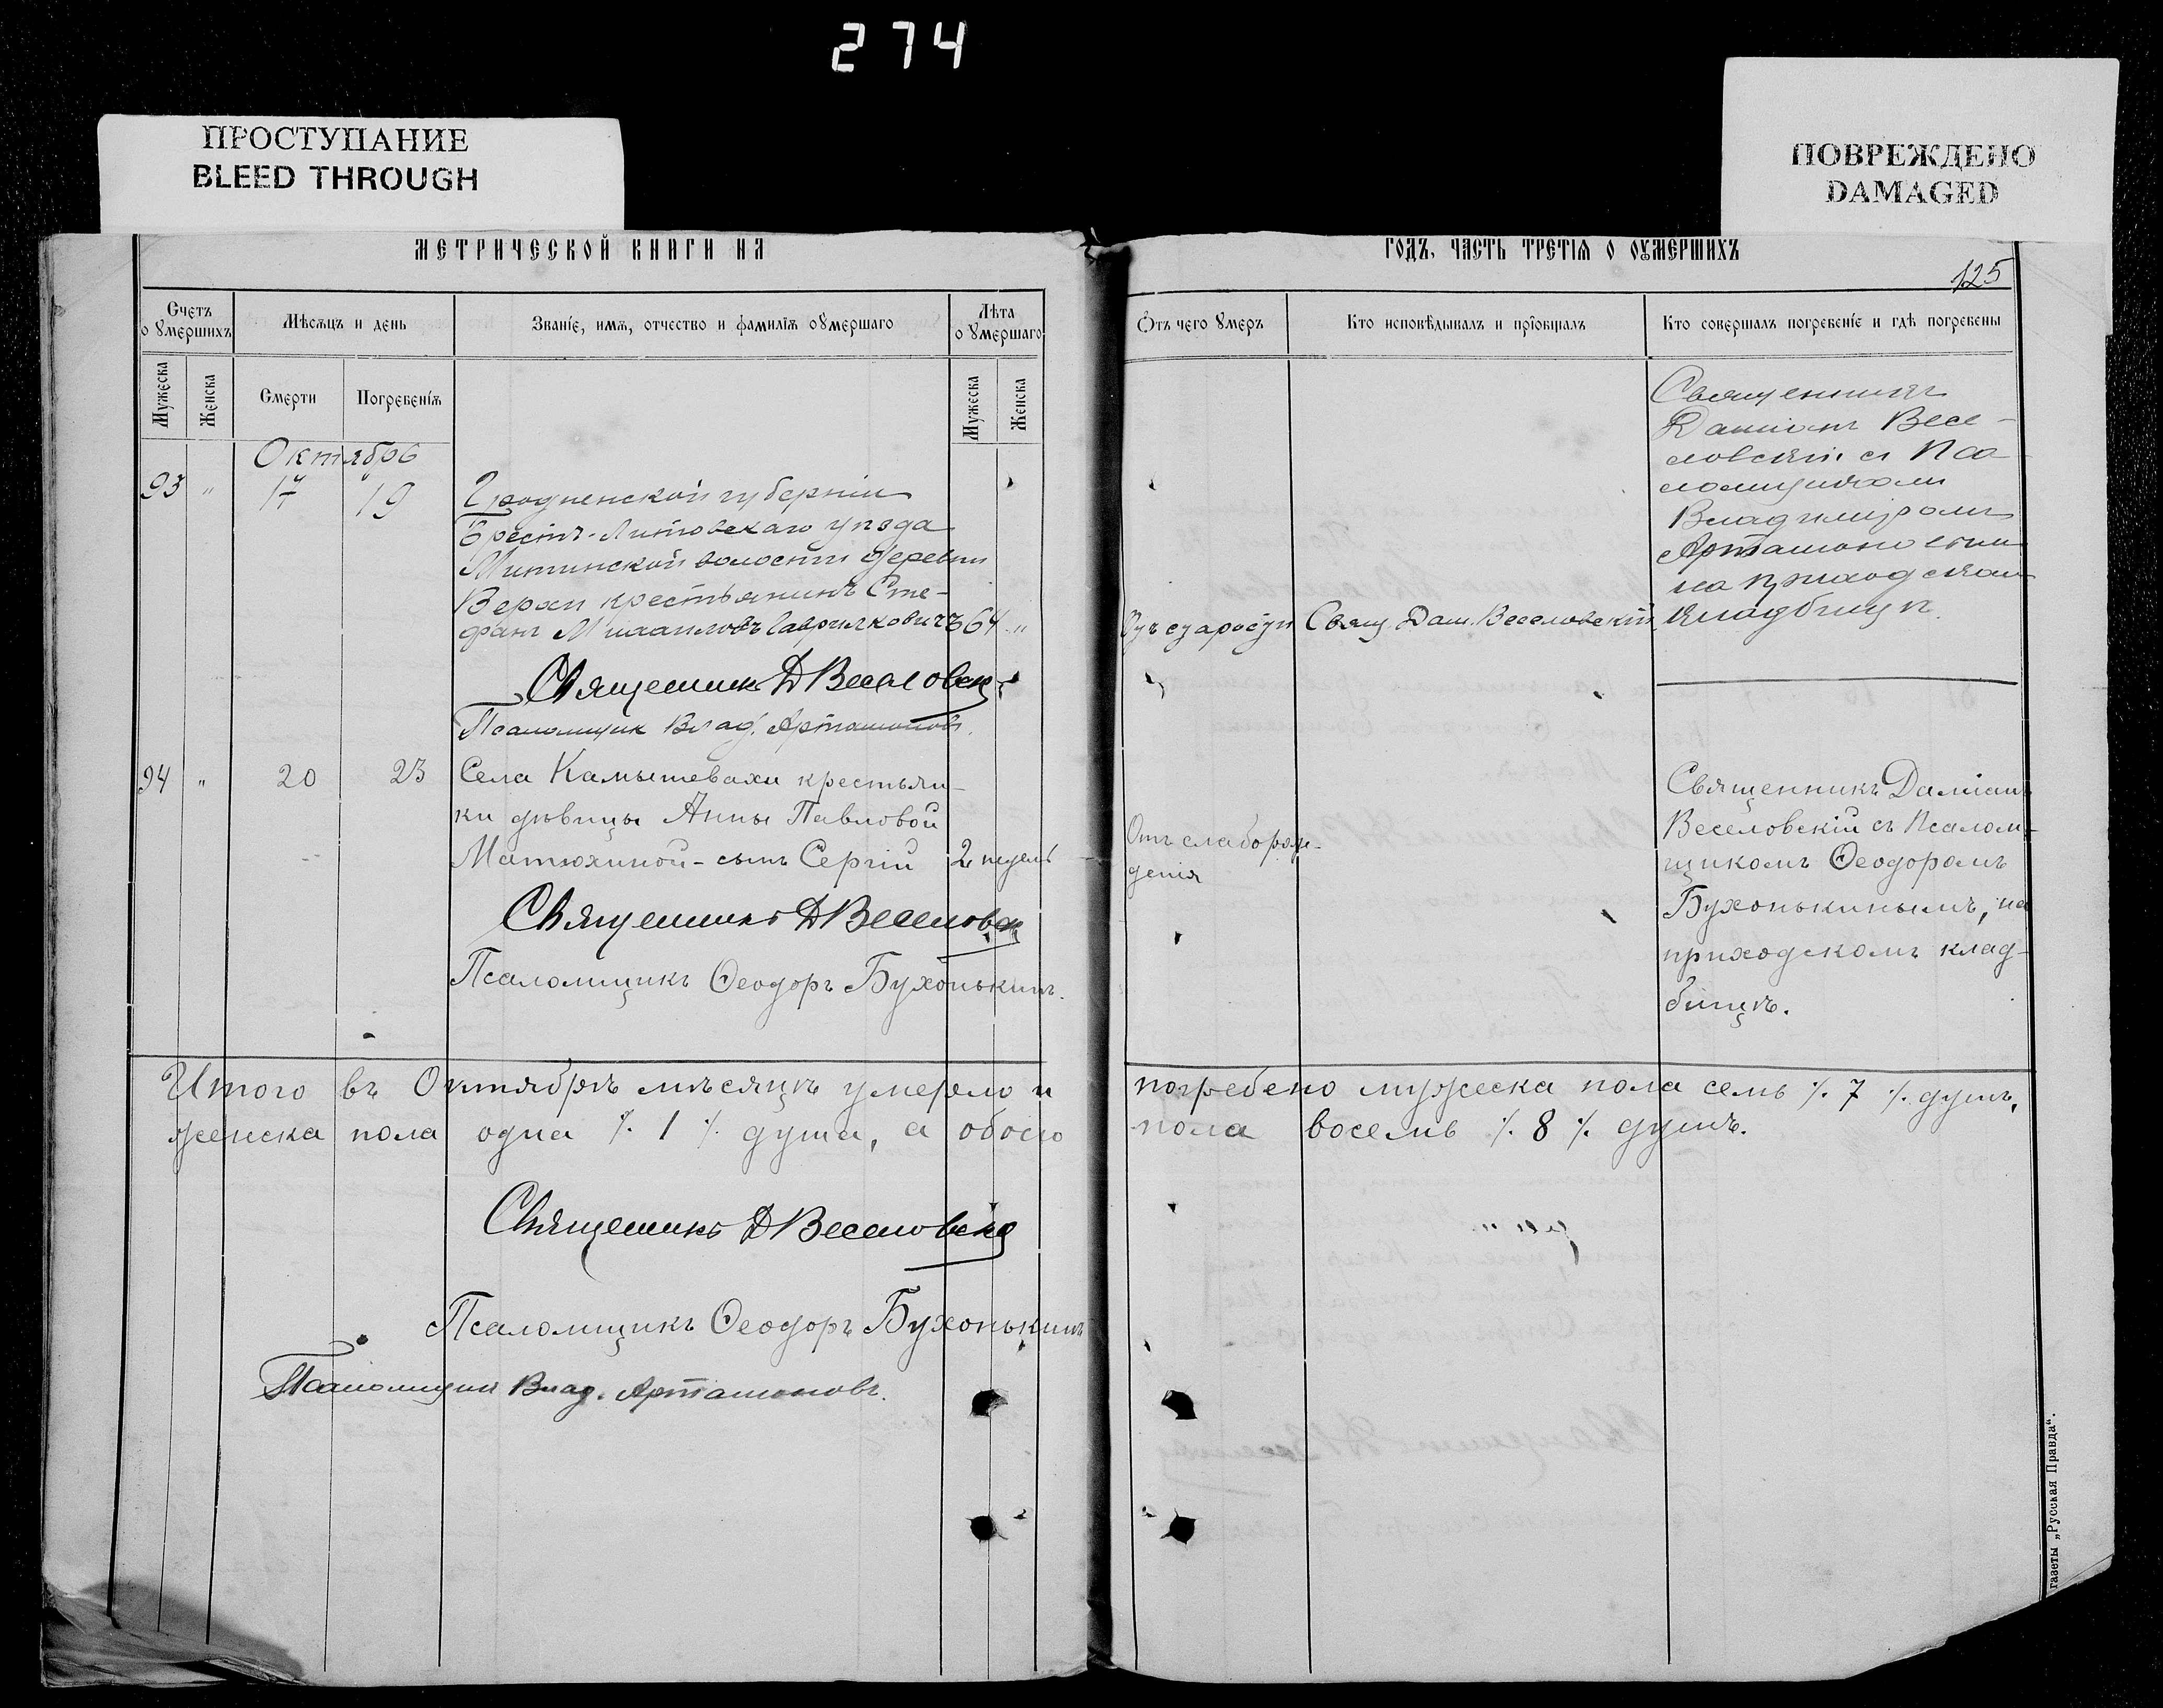 274
ПРОСТУПАНИЕ
BLEED THROUGH
ПОВРЕЖДЕНО
DAMAGED
МЕТРИЧЕСКОЙ КНИГИ НА
ГОДЪ, ЧАСТЬ ТРЕТІЯ О ОУМЕРШИХЪ
125
Счетъ оумершихъ
Мѣсяцъ и день
Званіе, имя, отчество и фамилія оумершаго
Лѣта оумершаго
Мужеска
Женска
Смерти
Погребенія
Мужеска
Женска
Отъ чего умеръ
Кто исповѣдывалъ и пріобщалъ
Кто совершалъ погребеніе и гдѣ погребены
Октябрь
93 " 17 19
Гродненской губерніи
Брестъ-Литовскаго уѣзда
волости деревни
Верхи крестьянинъ Сте-
фанъ Михаиловъ Гаврилковичъ 64 "
Отъ старости
Свящ. Дам. Веселовскій
Священникъ
Даміанъ Весе-
ловскій съ Пса-
ломщикомъ
Владиміромъ
на приходскомъ
кладбищѣ.
Священникъ Д Веселовск
Псаломщик Влад. Арташоновъ.
94 " 20 23
Села Камышевахи крестьян-
ки дѣвицы Анны Павловой
Матюхиной - сынъ Сергій 2 недѣль
Отъ слаборож-
денія
Священникъ Даміанъ
Веселовскій съ Псалом-
щикомъ Ѳеодоромъ
Бухонькинымъ, на
приходскомъ клад-
бищѣ.
Священникъ Д Веселовск
Псаломщикъ Ѳеодоръ Бухонькинъ.
Итого въ Октябрѣ мѣсяцѣ умерло и погребено мужеска пола семь ·/. 7 ·/. душъ,
женска пола одна ·/. 1 ·/. душа, а обоего пола восемь ·/. 8 ·/. душъ.
Священникъ Д Веселовск
Псаломщикъ Ѳеодоръ Бухонькинъ
Псаломщикъ Влад. Арташоновъ.
газеты „Русская Правда“.